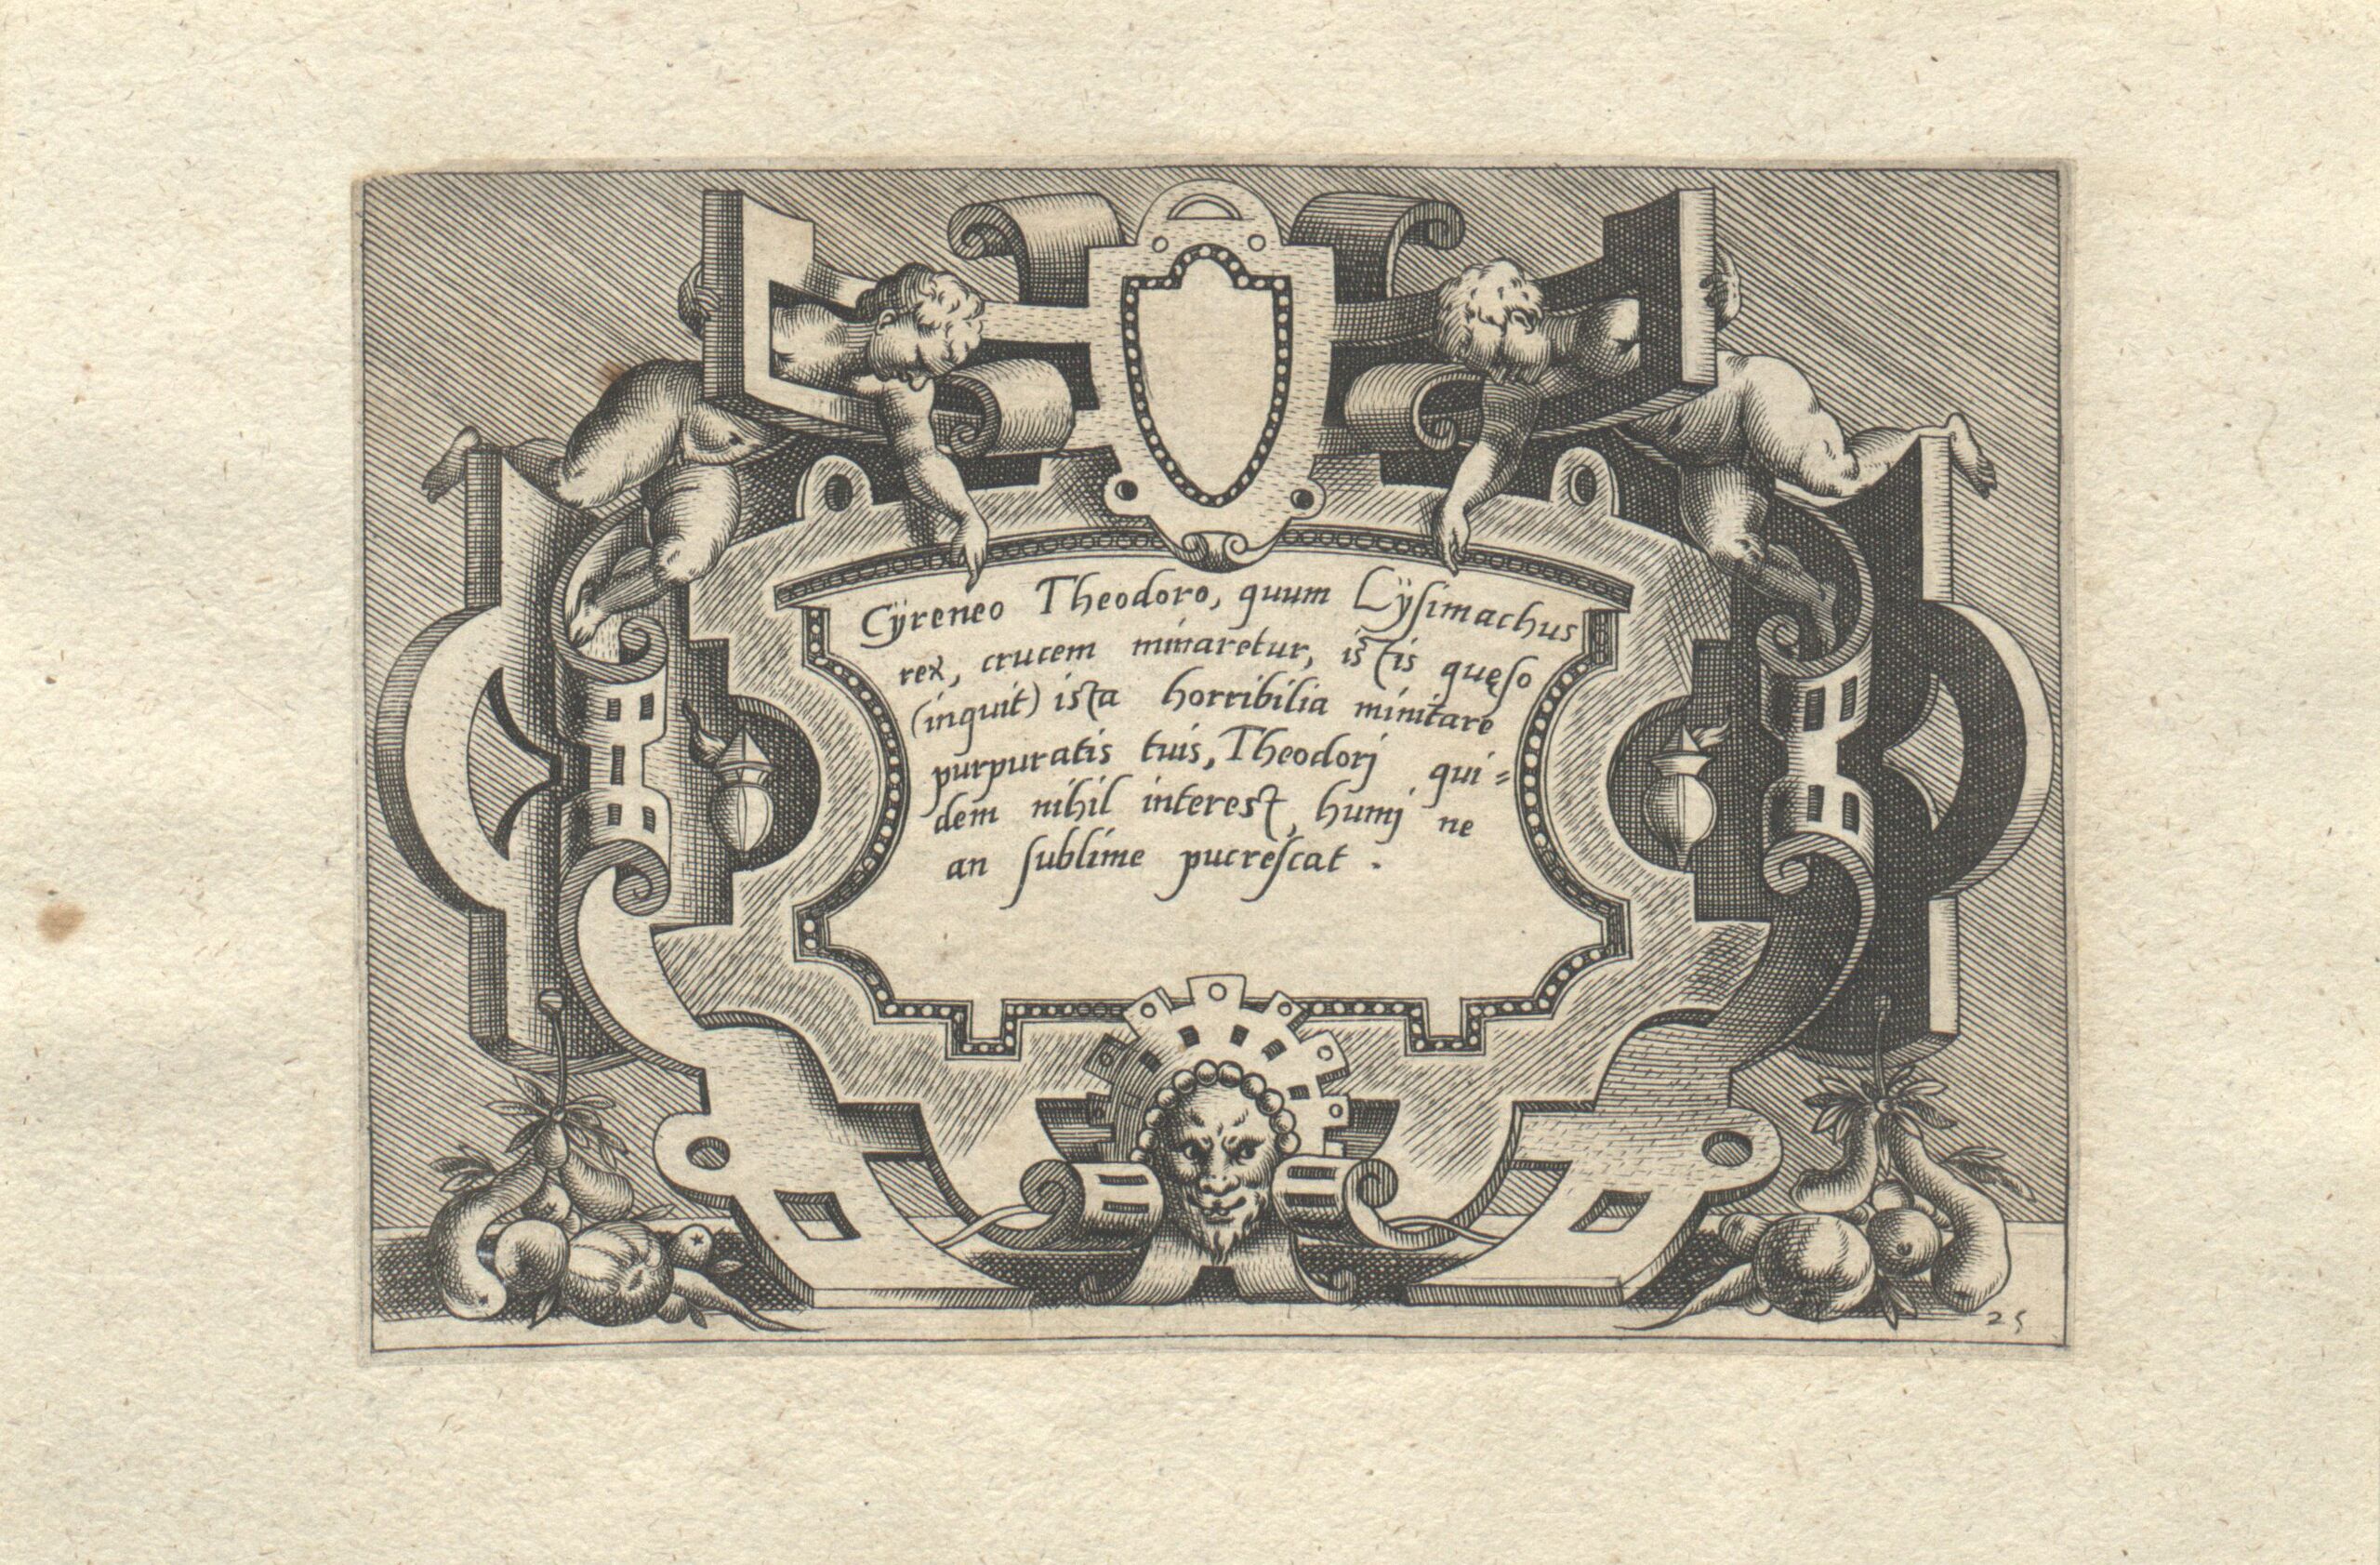 Cÿreneo Theodoro, quum Lÿſimachus
rex, crucem minaretur, istis quęſo
(inquit) ista horribilia minitare
purpuratis tuis, Theodorj qui=
dem nihil interest, humj ne
an ſublime pucreſcat.
25